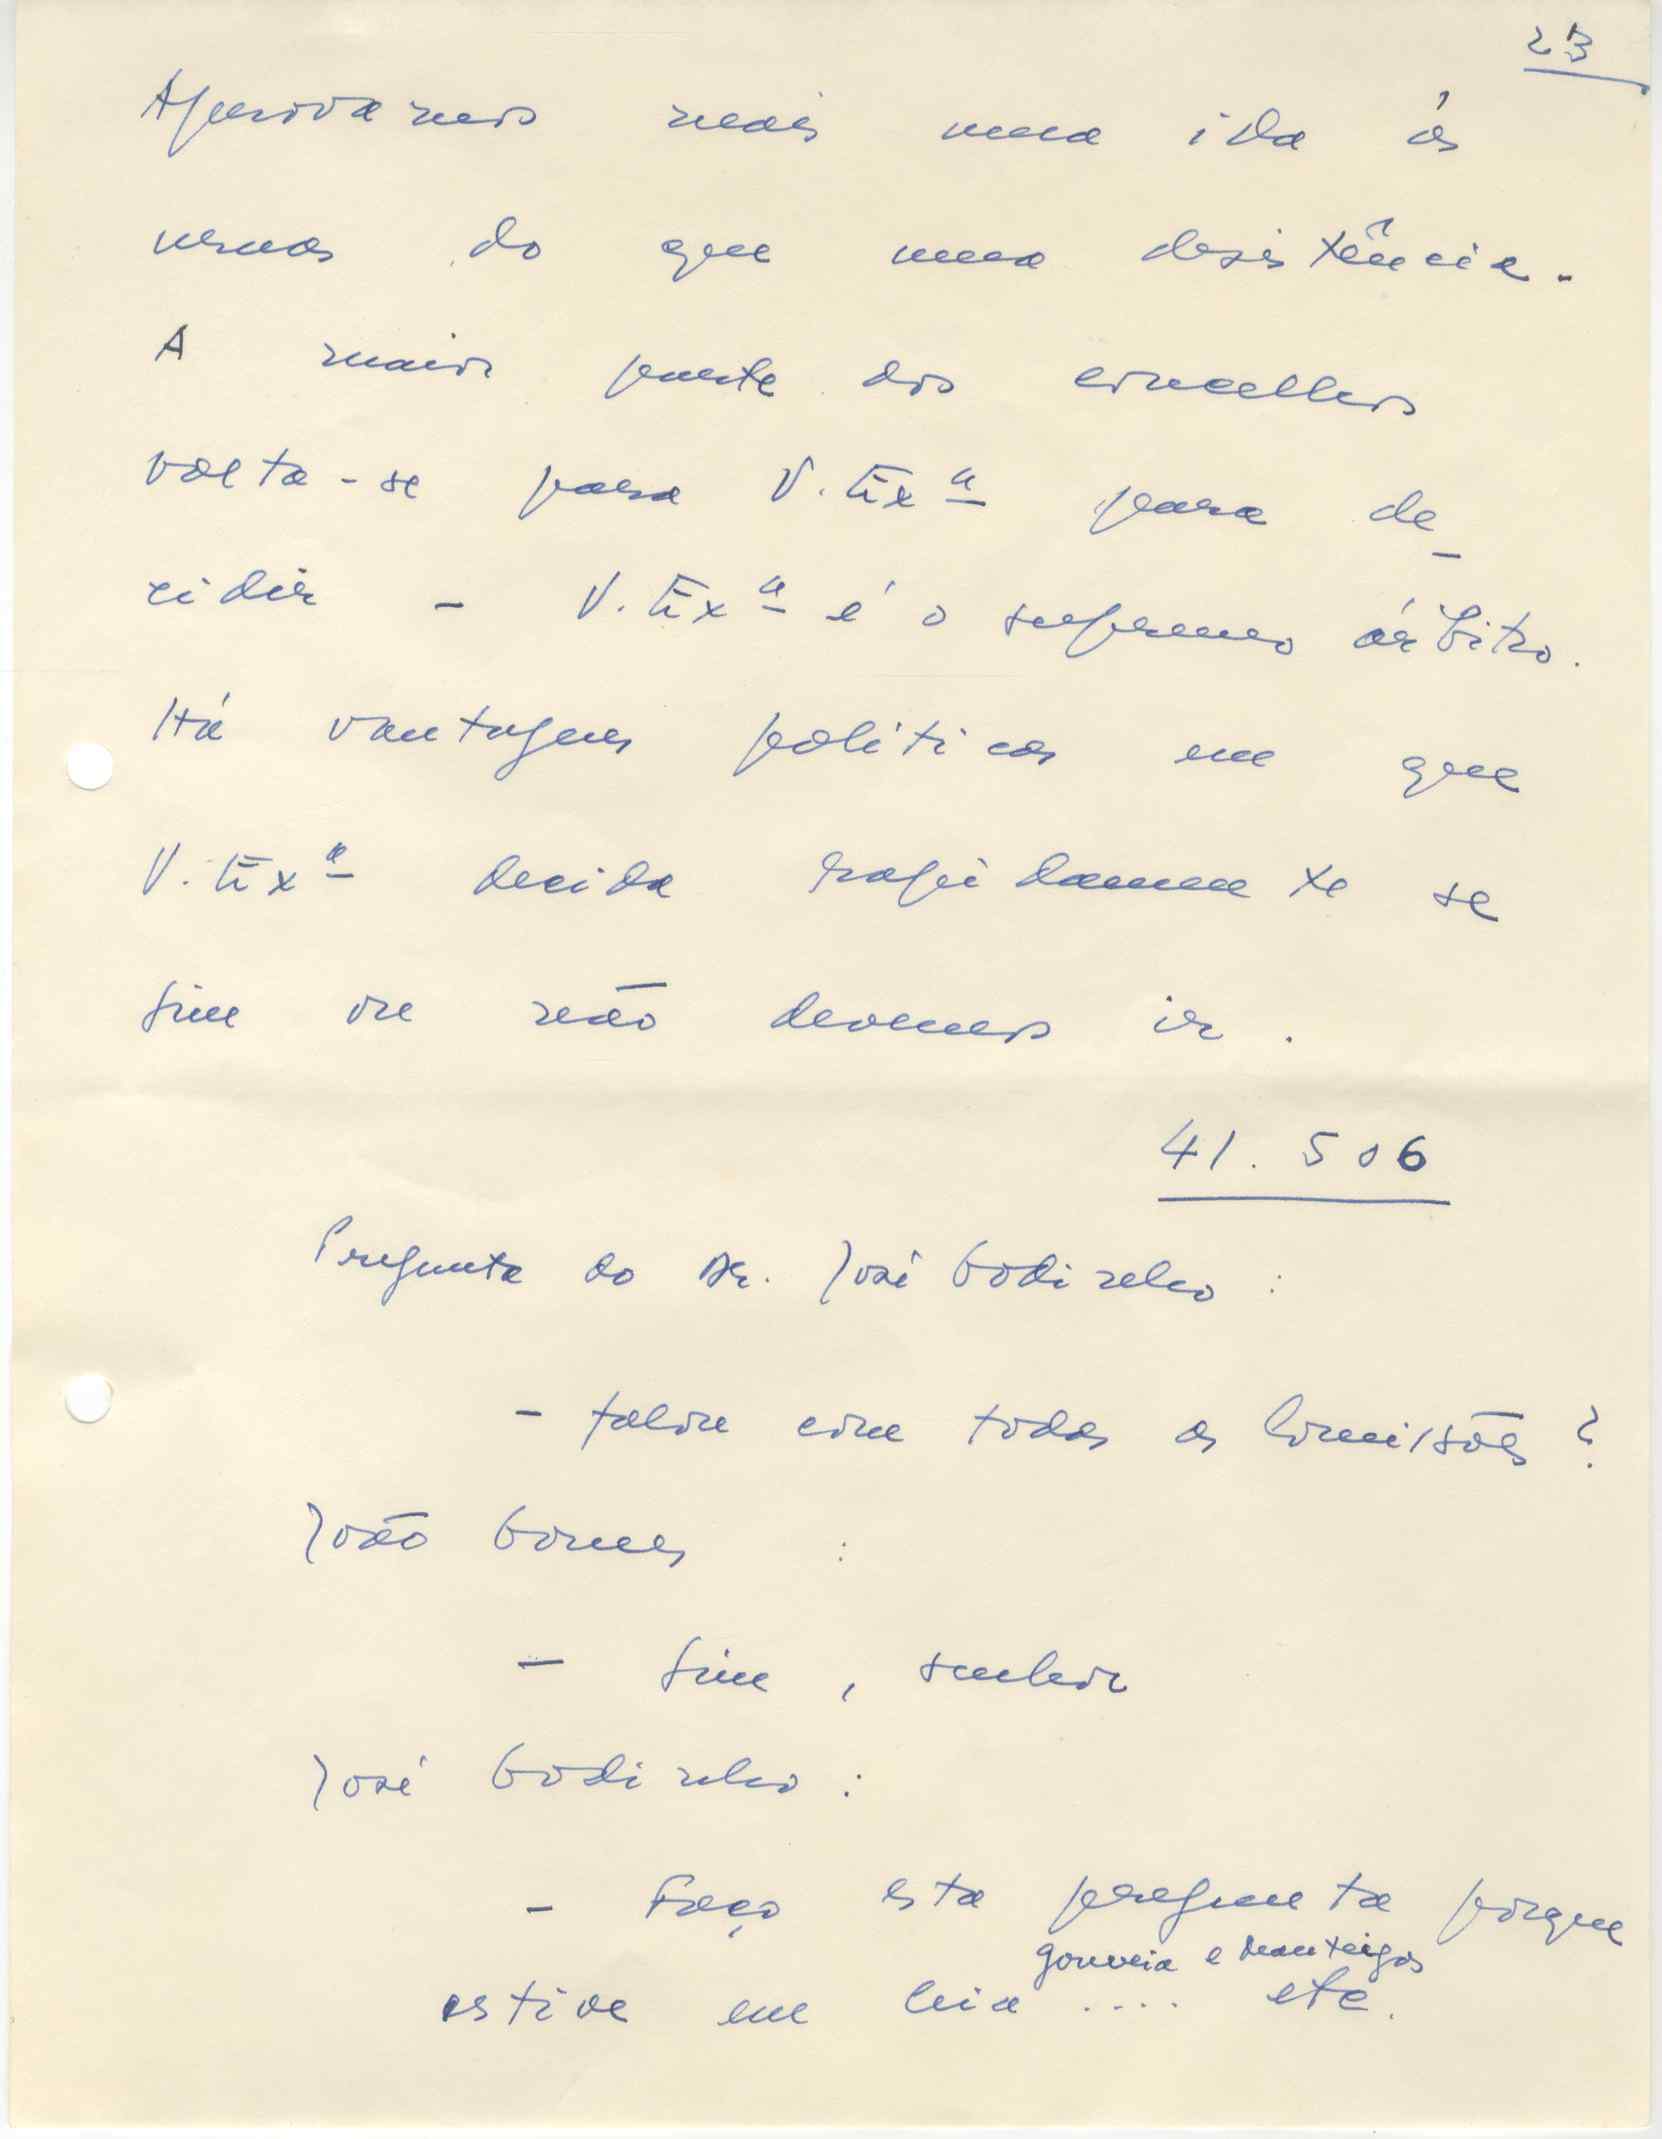 23
Aprovamos mais uma ida ás
urnas do que uma desistência.
A maior parte dos concelhos
volta-se para V. Exª para de-
cidir - V. Exª é o supremo árbitro.
Há vantagens políticas em que
V. Exª decida rapidamente se
sim ou não devemos ir.
41.506
Pregunta do Dr. José Godinho:
- falou com todas as Comissões?
João Gomes :
- Sim, senhor
José Godinho:
- Faço esta pregunta porque
Gouveia e Manteigas
estive em Ceia .... etc.